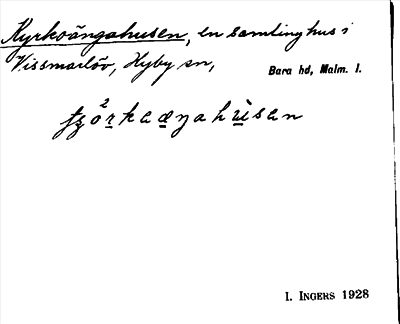 Kyrkoängahusen, en samling hus i
Vissmarlöv, Hyby sn,
Bara hd, Malm. l.
I. INGERS 1928